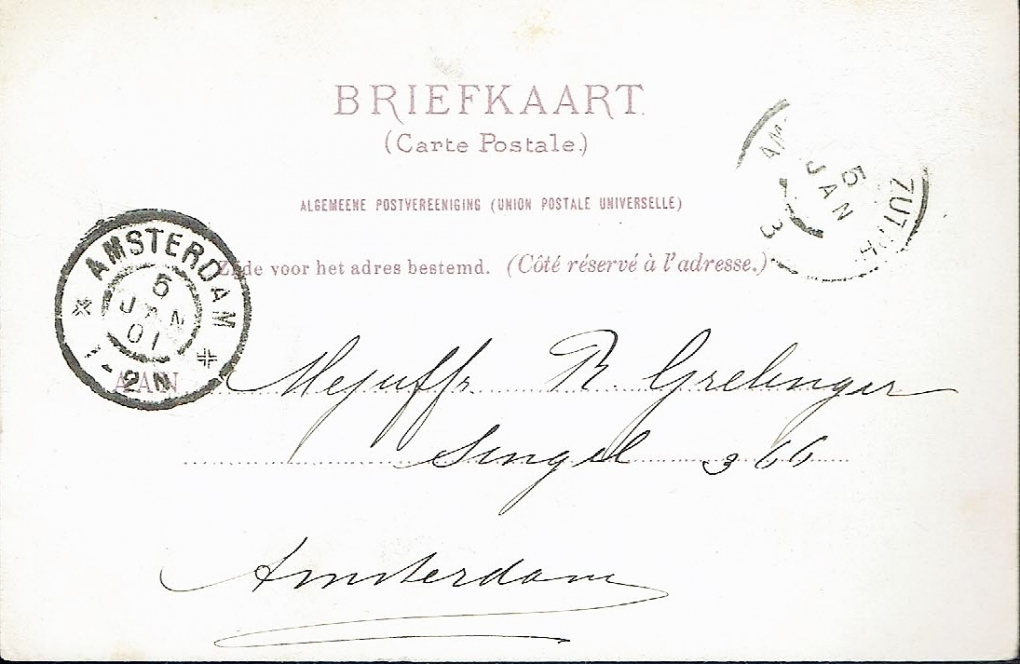 BRIEFKAART.
(Carte Postale.)
ALGEMEENE POSTVEREENIGING (UNION POSTALE UNIVERSELLE)
Zijde voor het adres bestemd. (Côté réservé à l'adresse.)
AMSTERDAM
5
JAN
01
1-2N
5
JAN
3
AAN
Mejuffr. R. Grelinger
Singel 366
Amsterdam